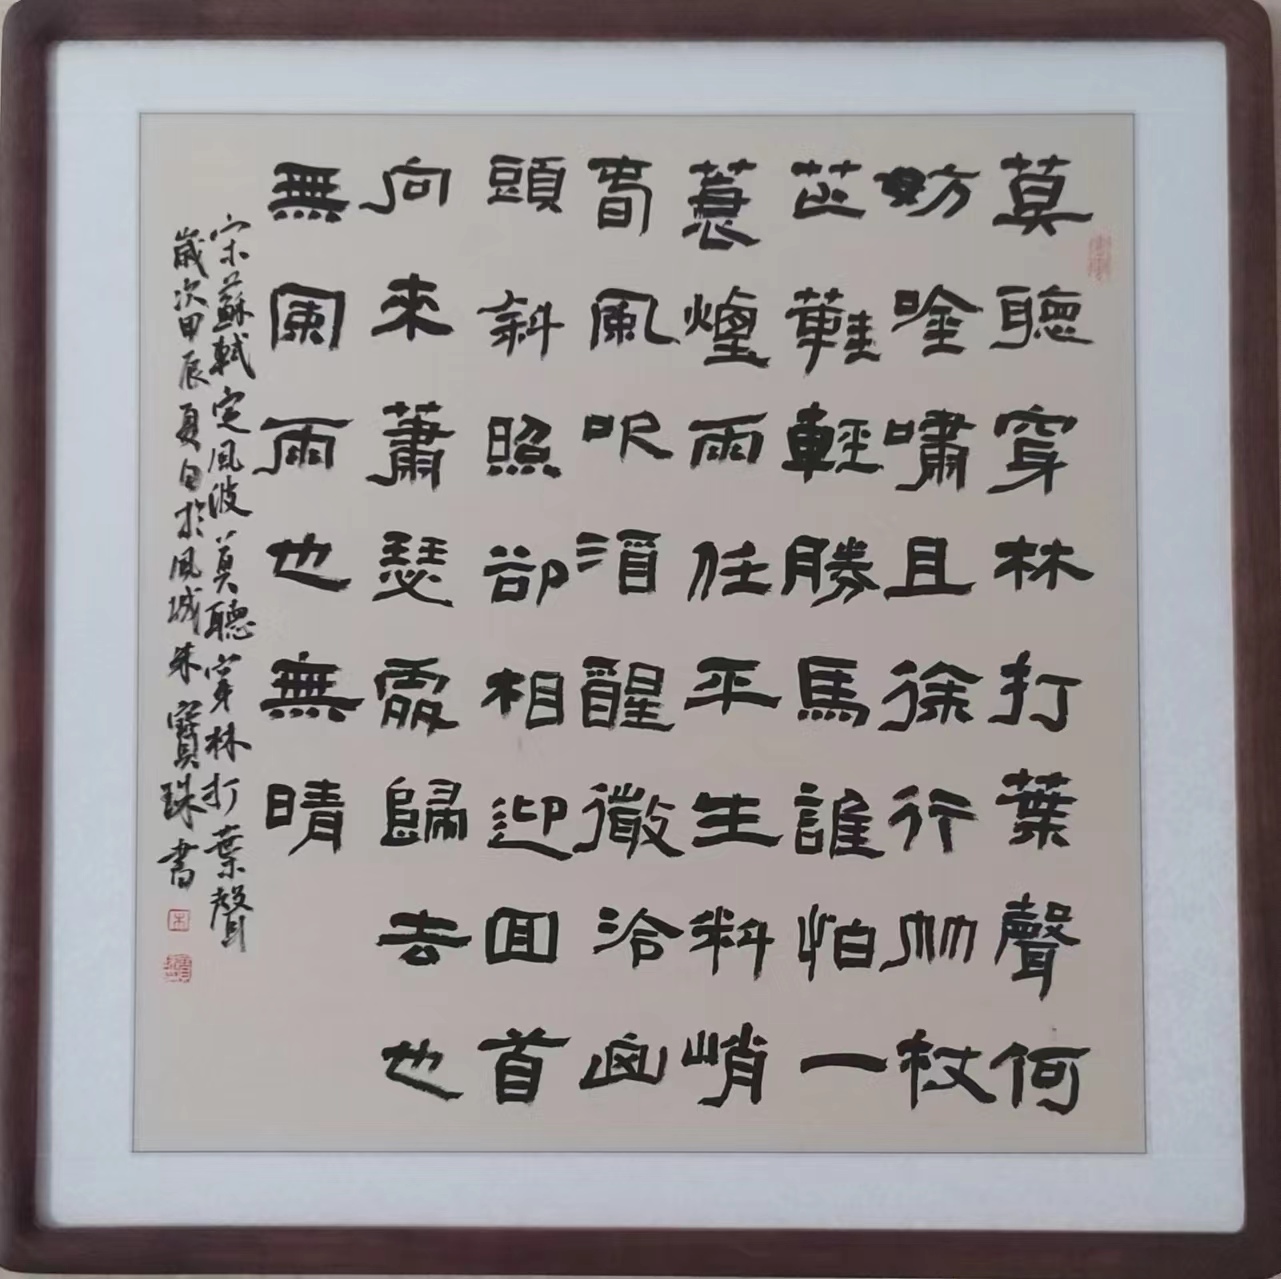 莫聽穿林打葉聲何
妨唫嘯且徐行竹杖
芒鞋輕勝馬誰怕一
蓑煙雨任平生料峭
春風吹酒醒微冷山
頭斜照卻相迎回首
向來蕭瑟處歸去也
無風雨也無晴
宋蘇軾定風波莫聽穿林打葉聲
歲次甲辰夏日於風城朱寶珠書
朱